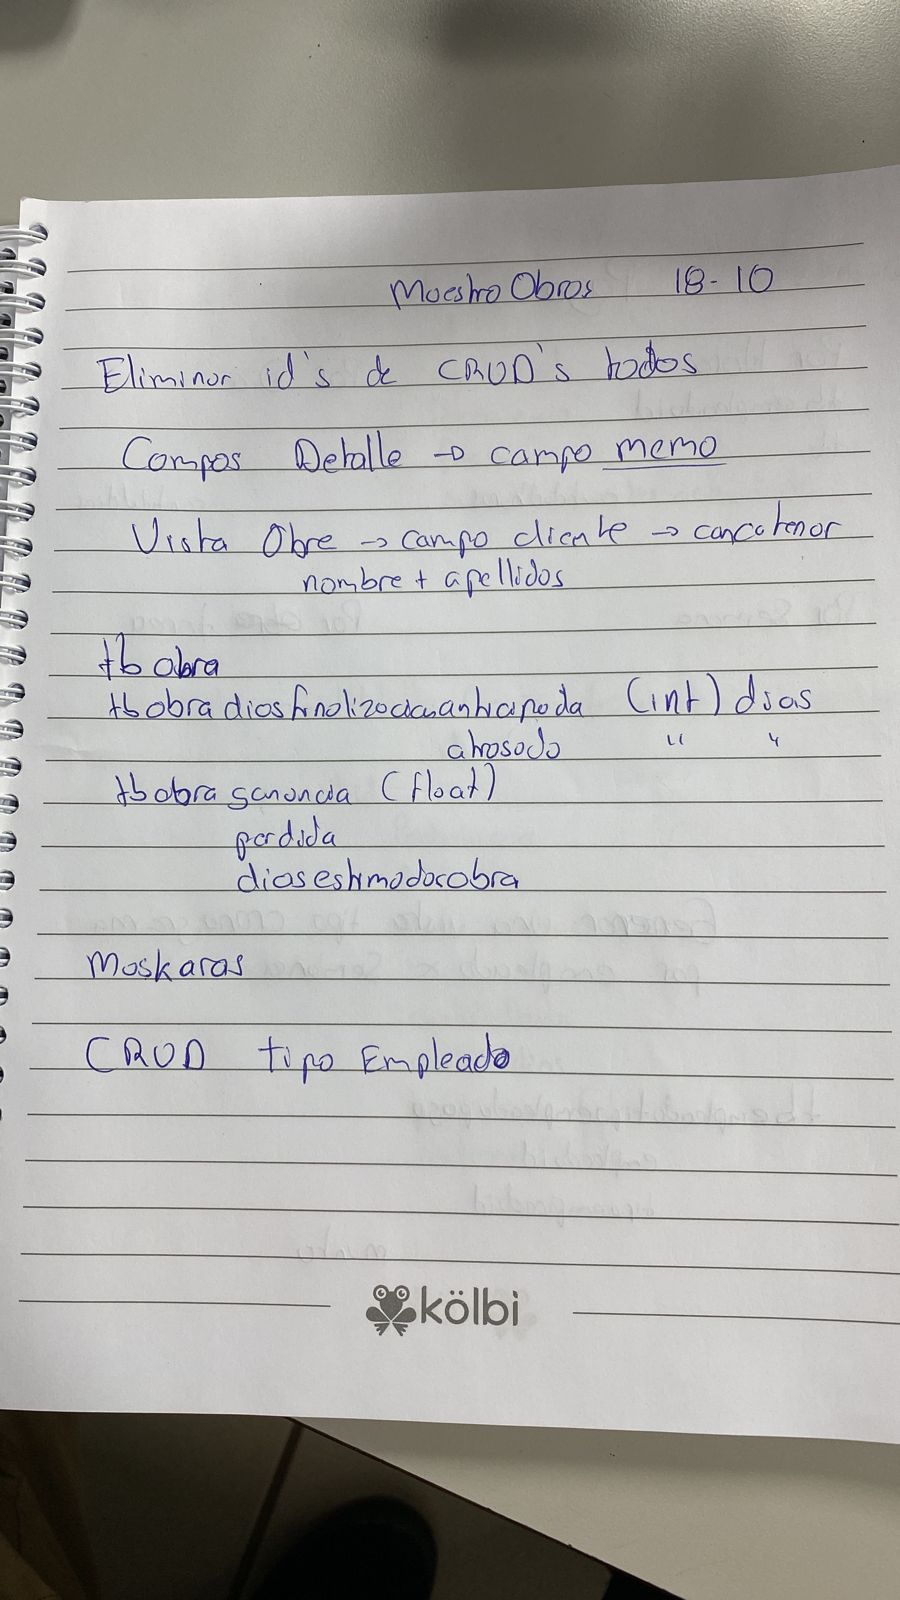 Maestro Obras 18-10
Eliminar id's de CRUD's todos
Campos Detalle → campo memo
Vista Obra → campo cliente → concatenar
nombre + apellidos
tb obra
tbobradiasfinalizadaanticipada (int) dias
atrasado " "
tbobraganancia (float)
perdida
diasestimadosobra
Maskaras
CRUD tipo Empleado
kölbi